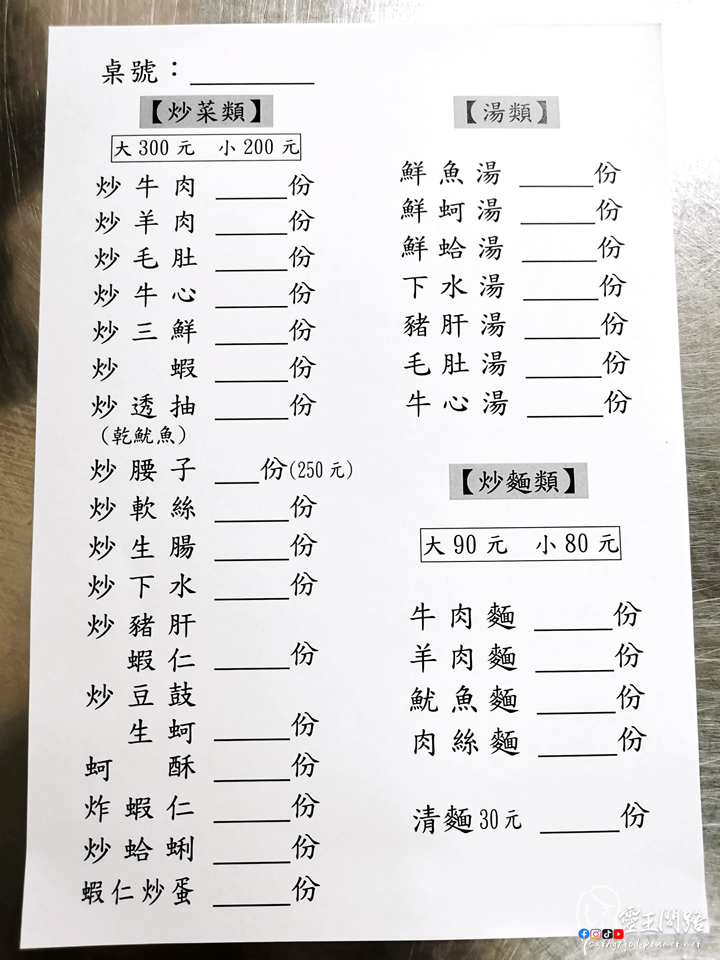 桌號：
【炒菜類】
大300元 小200元
炒牛肉 份
炒羊肉 份
炒毛肚 份
炒牛心 份
炒三鮮 份
炒蝦 份
炒透抽 份
(乾魷魚)
炒腰子 份(250元)
炒軟絲 份
炒生腸 份
炒下水 份
炒豬肝
蝦仁 份
炒豆鼓
生蚵 份
蚵酥 份
炸蝦仁 份
炒蛤蜊 份
蝦仁炒蛋 份
【湯類】
鮮魚湯 份
鮮蚵湯 份
鮮蛤湯 份
下水湯 份
豬肝湯 份
毛肚湯 份
牛心湯 份
【炒麵類】
大90元 小80元
牛肉麵 份
羊肉麵 份
魷魚麵 份
肉絲麵 份
清麵30元 份